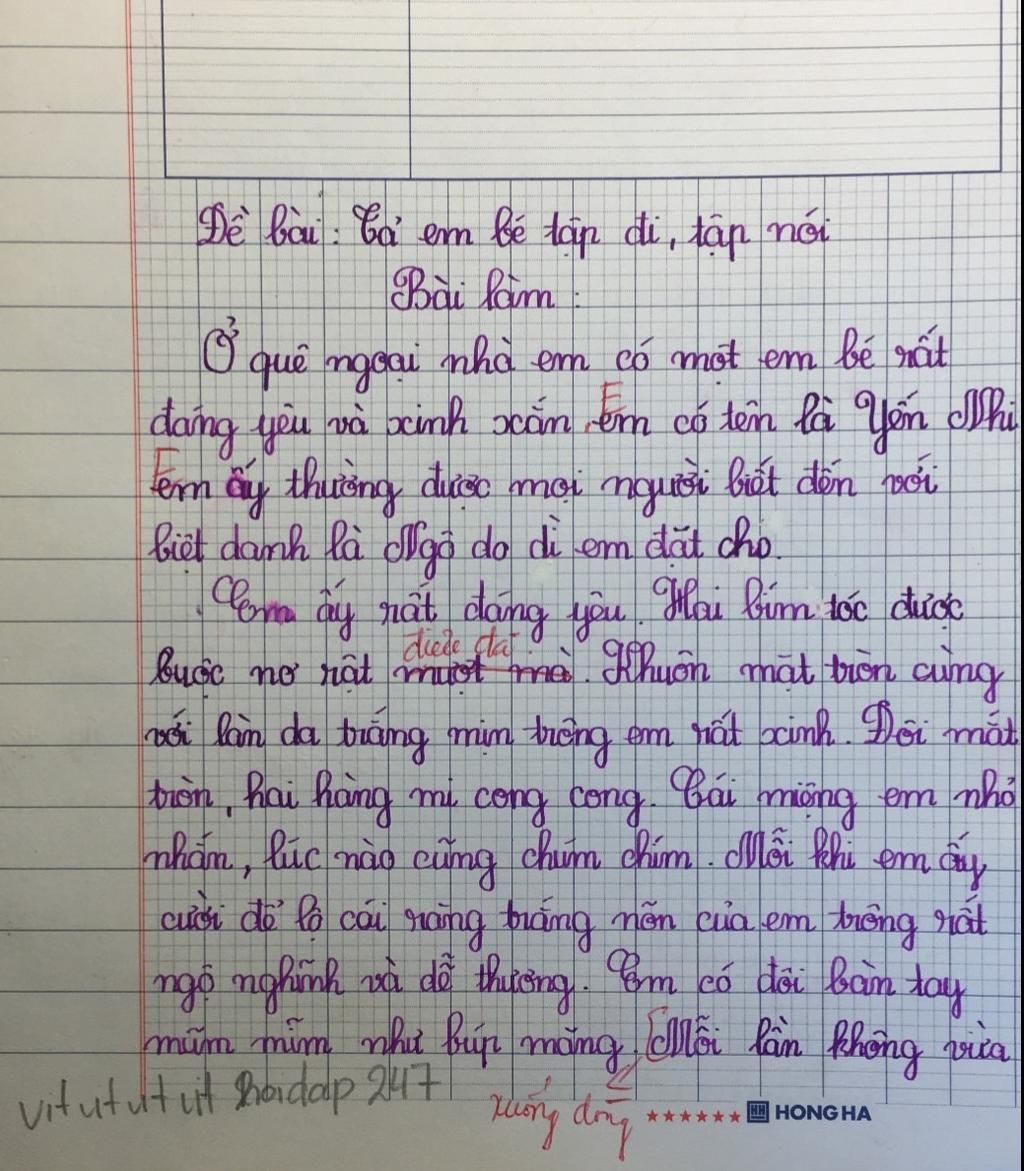 Đề bài: Tả em bé tập đi, tập nói
Bài làm:
Ở quê ngoại nhà em có một em bé rất
đáng yêu và xinh xắn. Em có tên là Yến Nhi
Em ấy thường được mọi người biết đến với
biệt danh là Ngô do dì em đặt cho.
Em ấy rất đáng yêu. Hai bím tóc được
điệu đà
buộc nơ rất mượt mà. Khuôn mặt tròn cùng
với làn da trắng mịn trông em rất xinh. Đôi mắt
tròn, hai hàng mi cong cong. Cái miệng em nhỏ
nhắn, lúc nào cũng chúm chím. Mỗi khi em ấy
cười để lộ cái răng trắng nõn của em trông rất
ngộ nghĩnh và dễ thương. Em có đôi bàn tay
mũm mĩm như búp măng. [Mỗi lần không vừa
vitututuit hoidap 247
xuống dòng
HONG HA